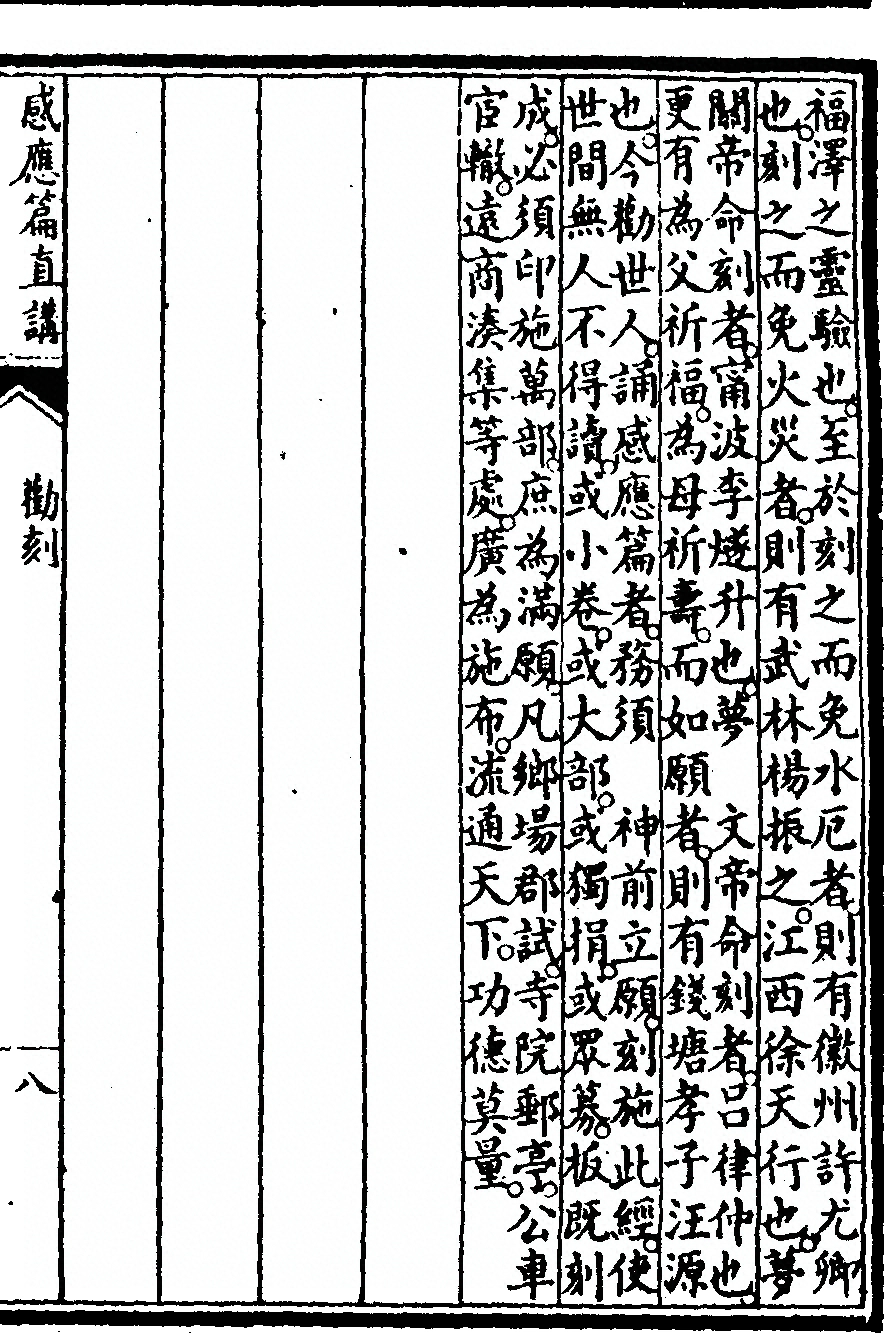 福澤之靈驗也。至於刻之而免水厄者。則有徽州許尤卿
也。刻之而免火災者。則有武林楊振之。江西徐天行也。夢
關帝命刻者。甯波李燧升也。夢　文帝命刻者。呂律仲也。
更有為父祈福。為母祈壽。而如願者。則有錢塘孝子汪源
也。今勸世人。誦感應篇者。務須　神前立願。刻施此經。使
世間無人不得讀。或小卷。或大部。或獨捐。或眾募。板既刻
成。必須印施萬部。庶為滿願。凡鄉場郡試。寺院郵亭。公車
宦轍。遠商湊集等處。廣為施布。流通天下。功德莫量。
感應篇直講
勸刻
八